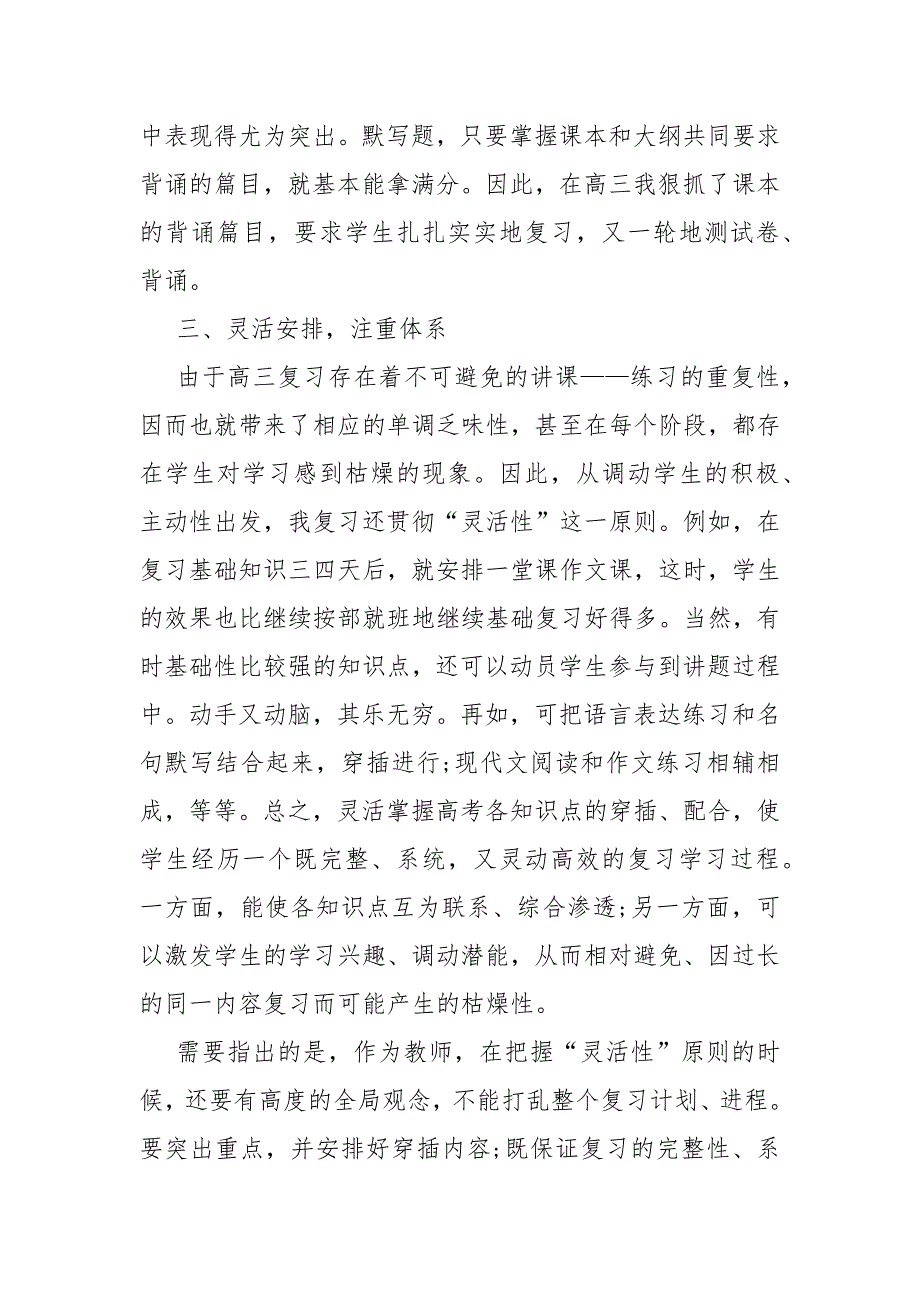 中表现得尤为突出。默写题，只要掌握课本和大纲共同要求
背诵的篇目，就基本能拿满分。因此，在高三我狠抓了课本
的背诵篇目，要求学生扎扎实实地复习，又一轮地测试卷、
背诵。
三、灵活安排，注重体系
由于高三复习存在着不可避免的讲课——练习的重复性，
因而也就带来了相应的单调乏味性，甚至在每个阶段，都存
在学生对学习感到枯燥的现象。因此，从调动学生的积极、
主动性出发，我复习还贯彻“灵活性”这一原则。例如，在
复习基础知识三四天后，就安排一堂课作文课，这时，学生
的效果也比继续按部就班地继续基础复习好得多。当然，有
时基础性比较强的知识点，还可以动员学生参与到讲题过程
中。动手又动脑，其乐无穷。再如，可把语言表达练习和名
句默写结合起来，穿插进行;现代文阅读和作文练习相辅相
成，等等。总之，灵活掌握高考各知识点的穿插、配合，使
学生经历一个既完整、系统，又灵动高效的复习学习过程。
一方面，能使各知识点互为联系、综合渗透;另一方面，可
以激发学生的学习兴趣、调动潜能，从而相对避免、因过长
的同一内容复习而可能产生的枯燥性。
需要指出的是，作为教师，在把握“灵活性”原则的时
候，还要有高度的全局观念，不能打乱整个复习计划、进程。
要突出重点，并安排好穿插内容;既保证复习的完整性、系